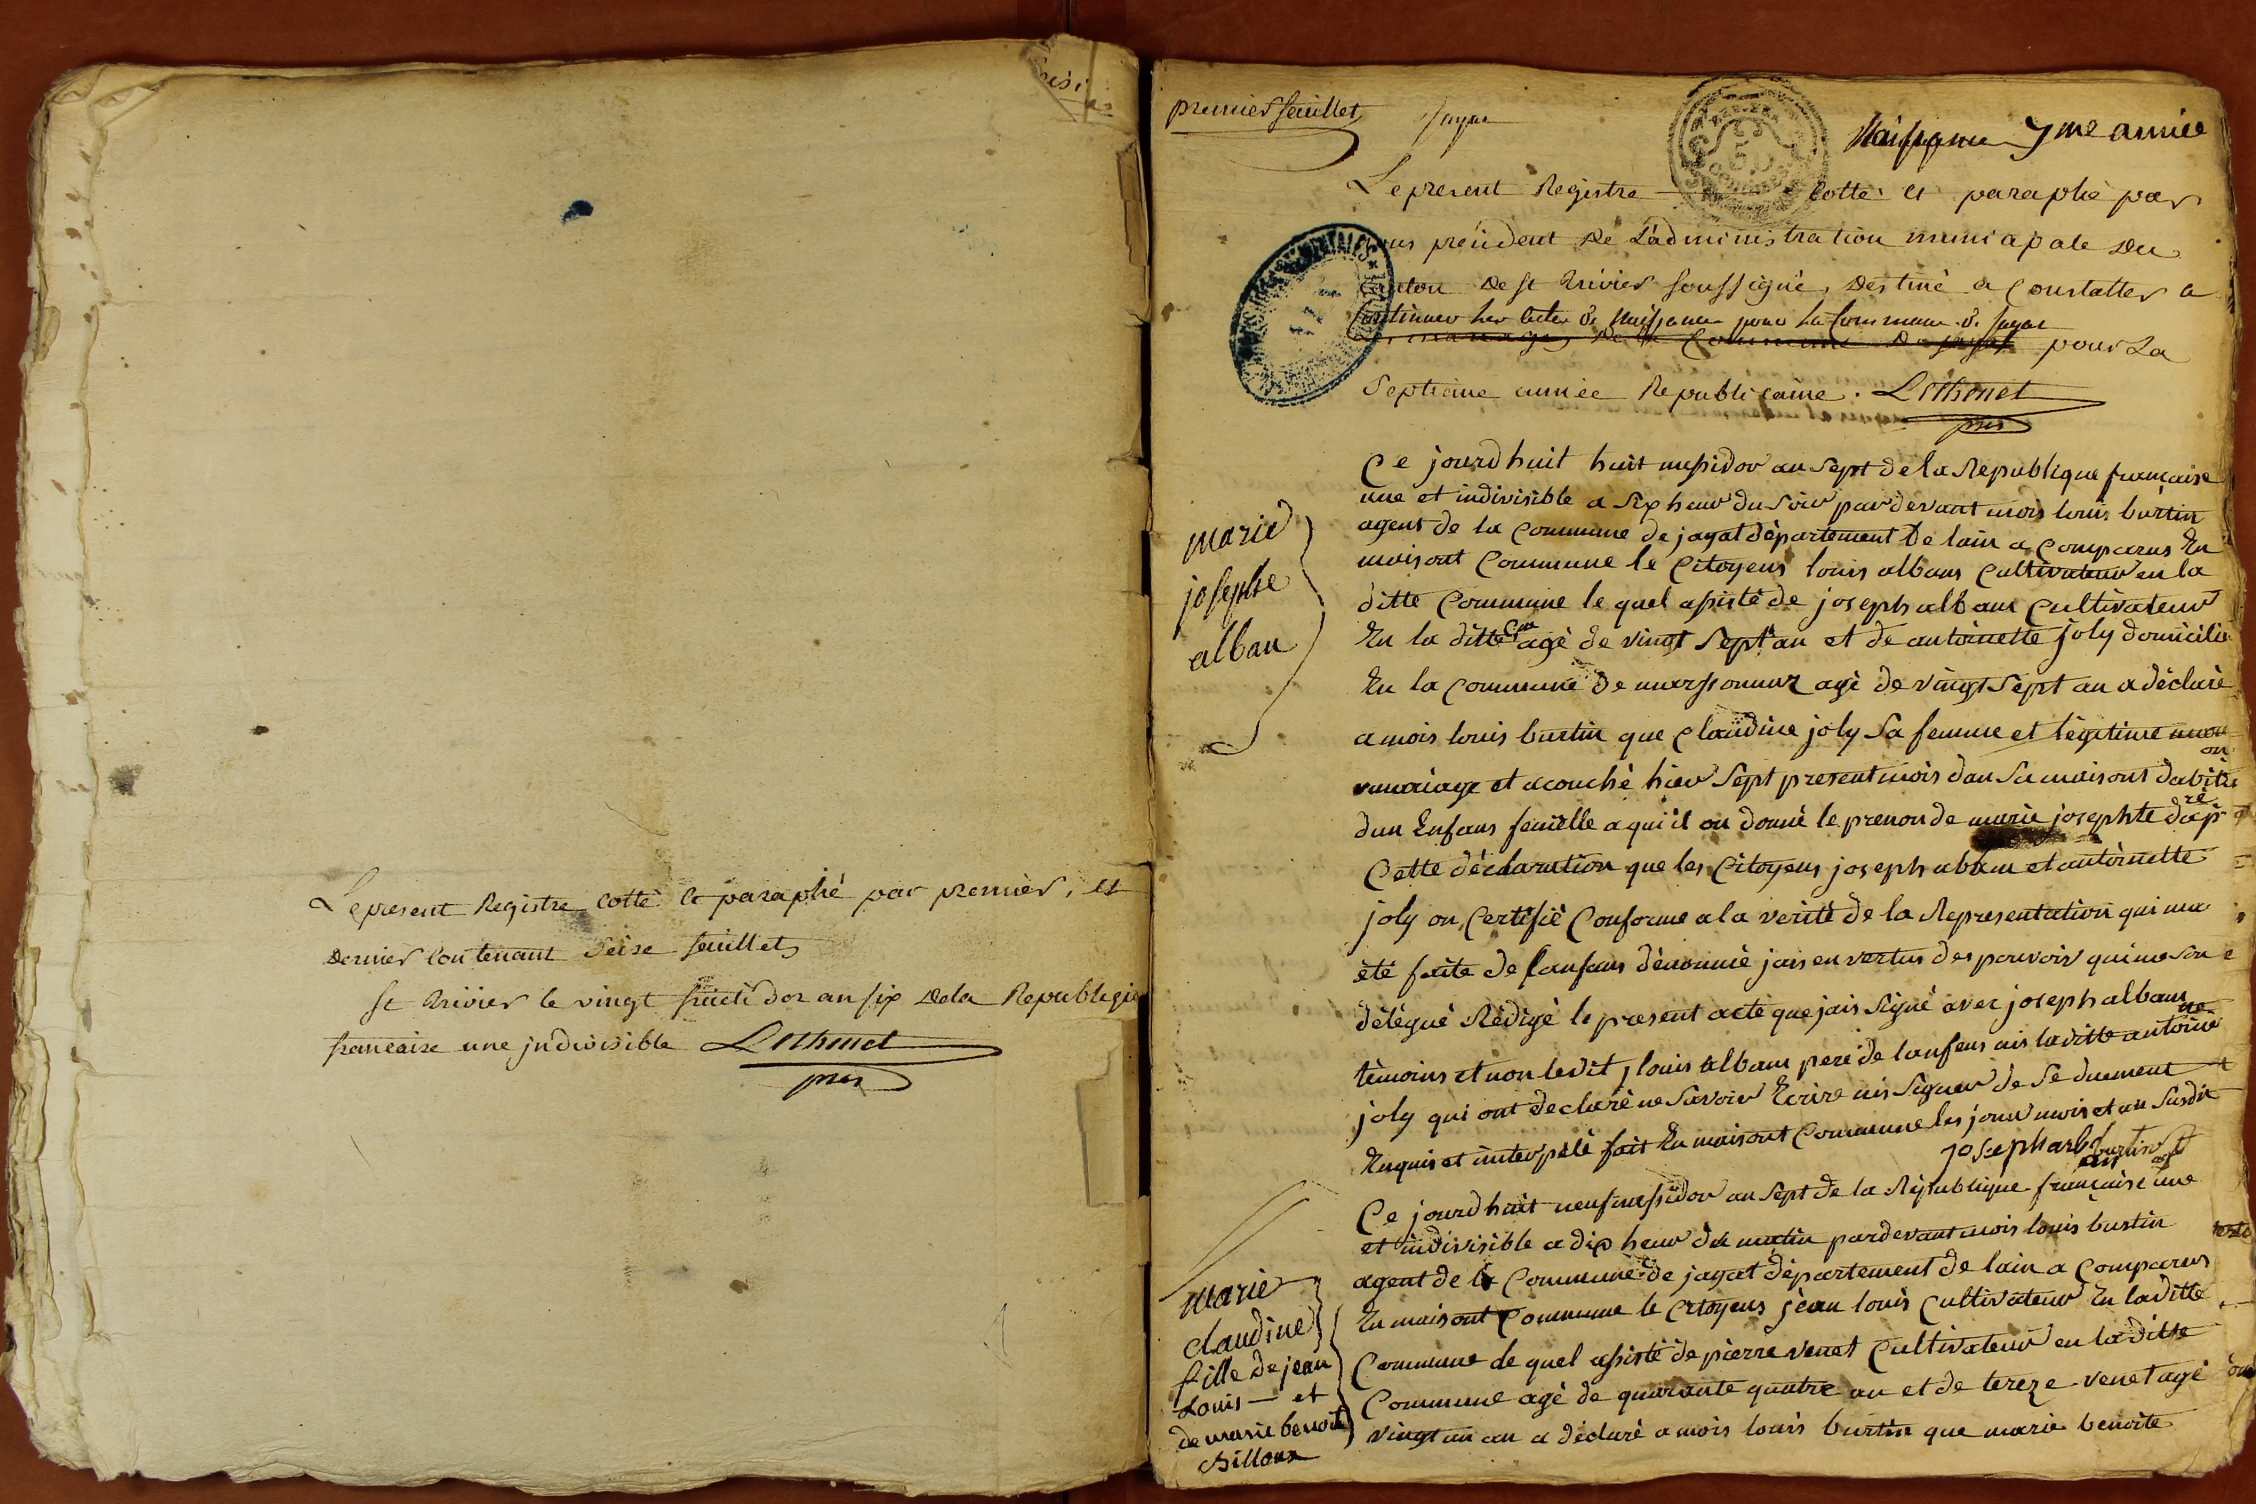 Le present Registre cotté et paraphé par premier, et
dernier contenant seise feuillets
St trivier le vingt fructidor an six dela Republique
francaise une indivisible Lethenet
pres
premier feuillet
Jayac
Naissance 7me année
Le present Registre cotté et paraphé par
nous président de L'administration municipale du
canton de st trivier soussigné, destiné a Constatter a
Continuer les actes de Naissance pour la Commune de Jayac
pour La
Septieme année Republicaine. Lethenet
pres
marie
josephte
alban
Ce jourdhuit huit messidor an sept de la Republique française
une et indivisible a six heur du soir pardevant mois louis burtin
agent de la Commune de jayat département de lain a comparus En
maisont Commune le Citoyens louis albans Cultivateur en la
ditte Commune le quel assisté de joseph alban Cultivateur
En la ditte Cne agé de vingt sept an et de antoinette joly domicilie
En la Commune de marssonnaz agé de vingt sept an a déclaré
a mois louis burtin que claudine joly sa femme et légitime
mariage et acouché hier sept present mois dan sa maisont
dun Enfans femelle a qui il on donné le prenon de marie josephte
Cette déclaration que les Citoyens joseph alban et antoinette
joly on Certifié Conforme a la verité de la Representation qui ma
été faite de lanfans dénommé jais en vertus des pouvoir qui me son
délégué Rédigé le present acte que jais signé avec joseph alban
témoins et non ledit louis alban pere de lanfens nis laditte antoinette
joly qui ont declaré ne savoir Ecrire nis signer de se duement
Enquis et interpelé fait En maisont Commune les jour mois et an susdit
joseph arban burtin agt
marie
claudine
fille de jean
Louis — et
de marie benoit
chilloux
Ce jourdhuit neuf messidor an sept de la République française une
et indivisible a dix heur du matin pardevant mois louis burtin
agent de la Commune de jayat département de lain a comparus
En maisont Commune le Citoyens jean louis Cultivateur En laditte
Commune le quel assisté de pierre venet Cultivateur en la ditte
Commune agé de quarante quatre an et de tereze venet agé
vingt un an a déclaré a mois louis burtin que marie benoite